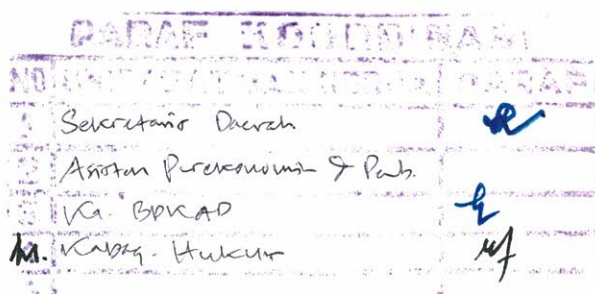 PARAF KOORDINASI
NO PARAF
Sekretaris Daerah
Asisten Perekonomian & Pemb.
Ka. BPKAD
Kabag. Hukum